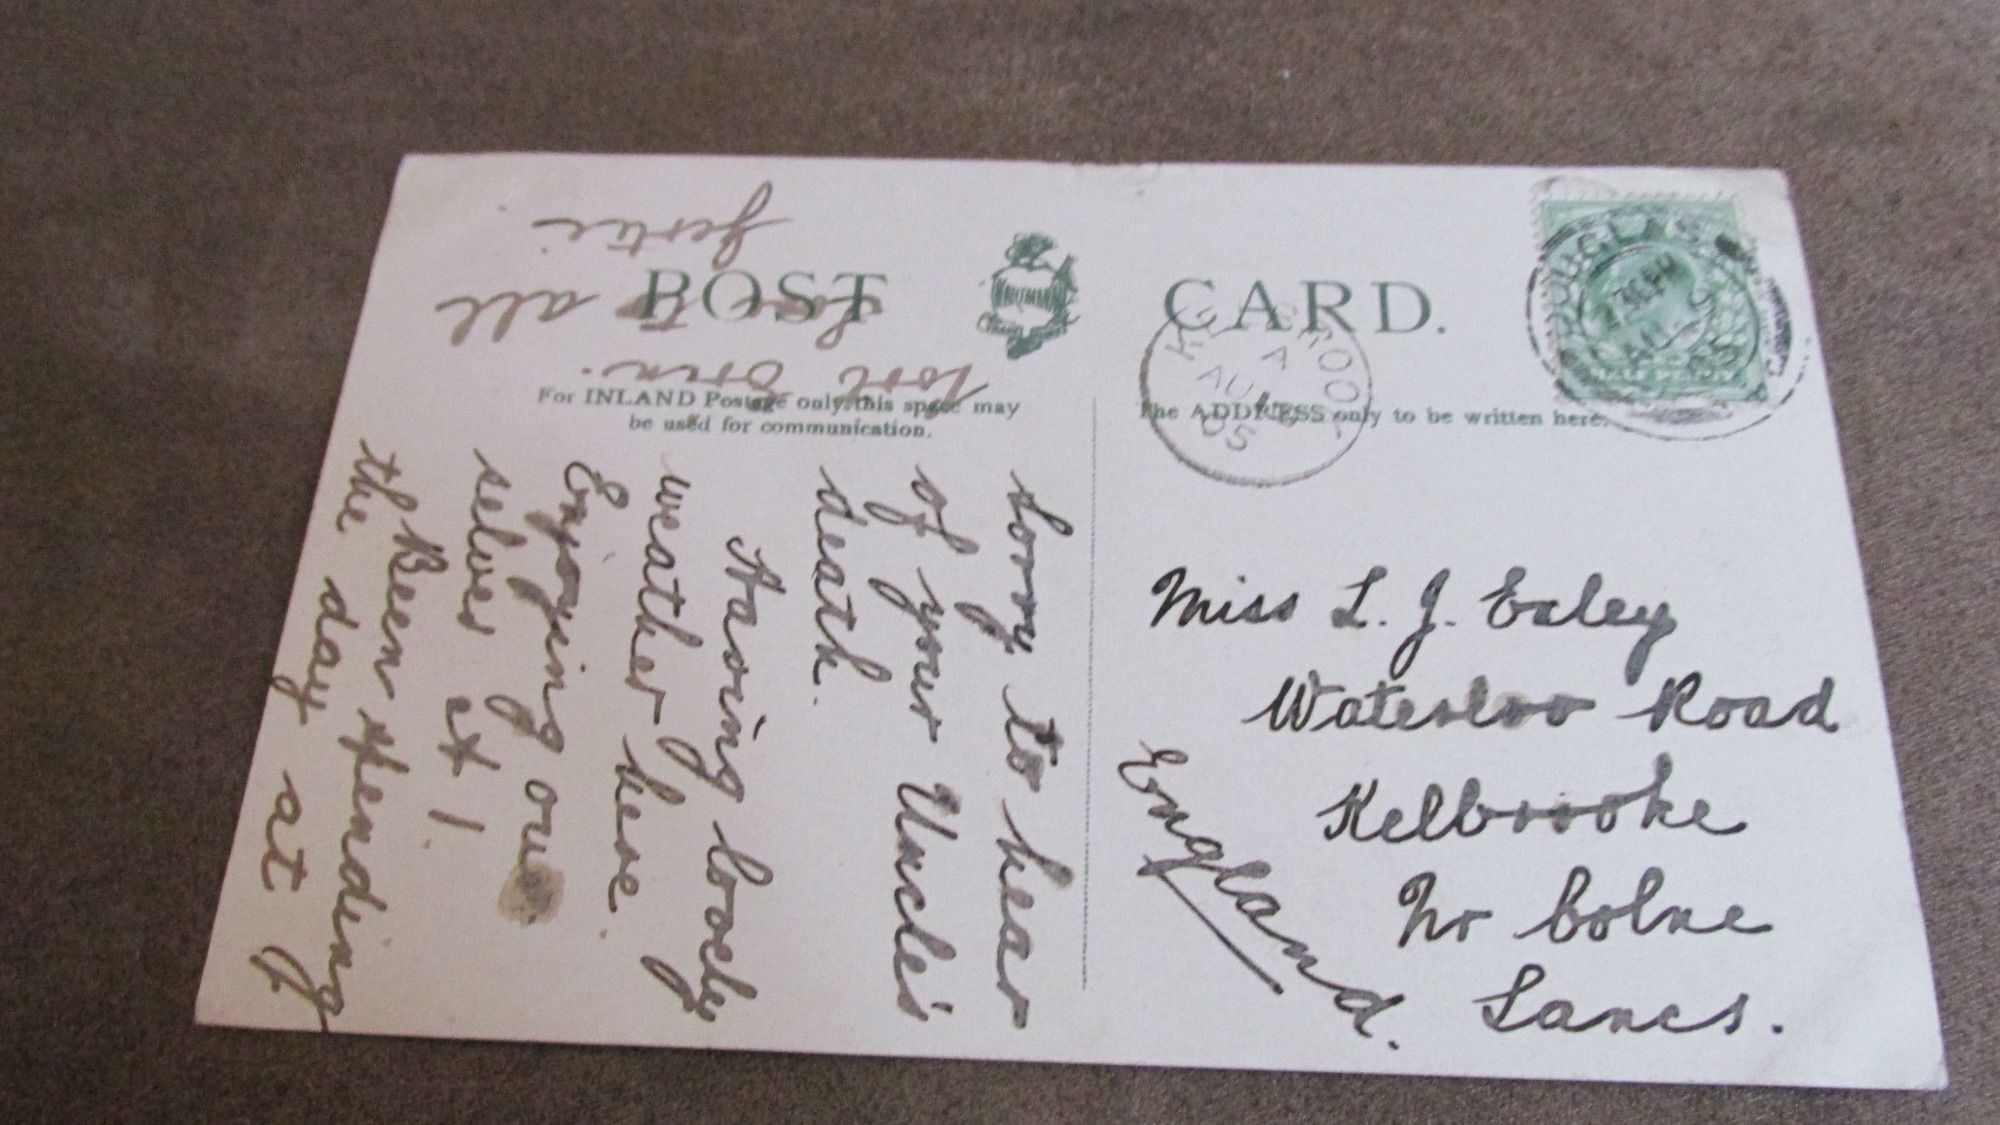 POST CARD.
HARTMANN
For INLAND Postage only this space may
be used for communication.
The ADDRESS only to be written here.
DOUGLAS
AU 9
05
A
AU
05
Miss L. J. Exley
Waterloo Road
Kelbrooke
Nr Colne
Lancs.
England.
Sorry to hear
of your Uncle's
death.
Having lovely
weather here
Enjoying our
selves at 1.
Been spending
the day at
Port Erin.
Love to all
Gertie